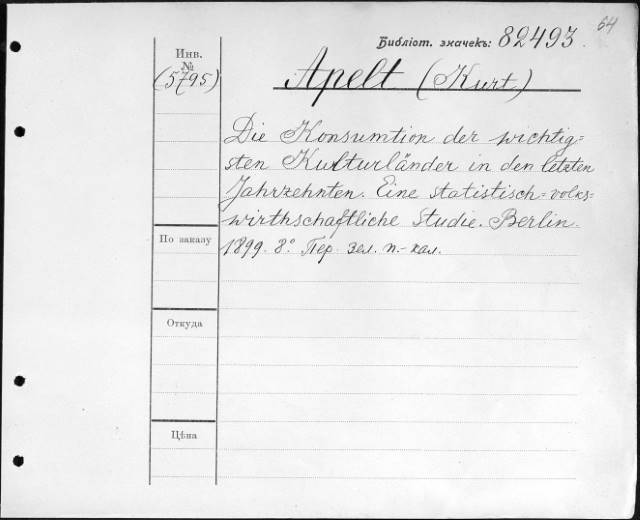 64
Библіот. значекъ: 82493.
Инв.
№
(5795)
Apelt (Kurt)
Die Konsumtion der wichtig=
sten Kulturländer in den letzten
Jahrzehnten. Eine statistisch=volks=
wirthschaftliche Studie. Berlin.
1899. 8°. Пер. зел. п.-кал.
По заказу
Откуда
Цѣна